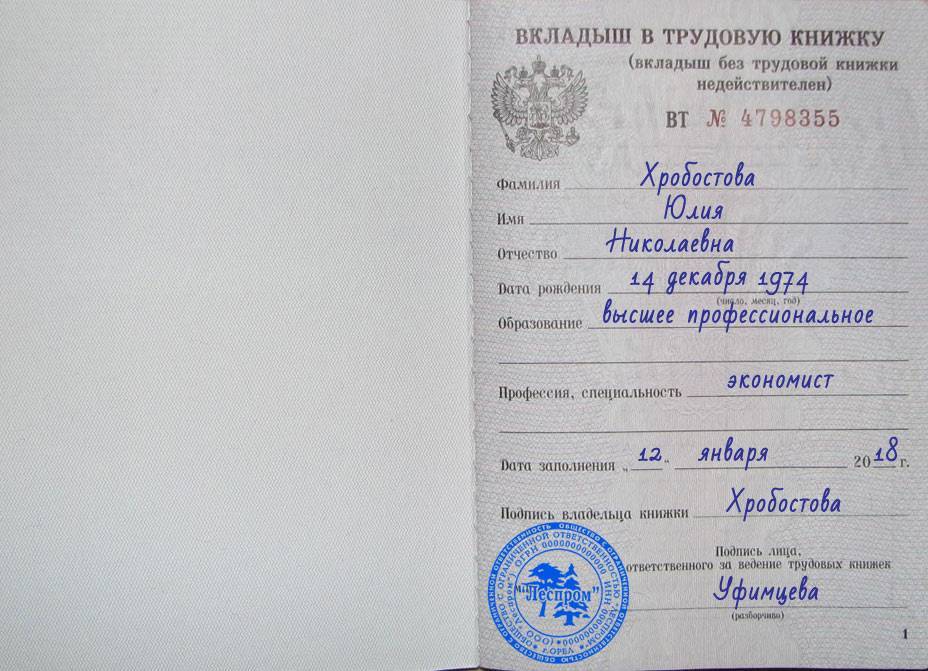 ВКЛАДЫШ В ТРУДОВУЮ КНИЖКУ
(вкладыш без трудовой книжки
недействителен)
ВТ № 4798355
Фамилия Хробостова
Имя Юлия
Отчество Николаевна
Дата рождения 14 декабря 1974
(число, месяц, год)
Образование высшее профессиональное
Профессия, специальность экономист
Дата заполнения „12“ января 2018 г.
Подпись владельца книжки Хробостова
Подпись лица,
ответственного за ведение трудовых книжек
Уфимцева
(разборчиво)
ОБЩЕСТВО С ОГРАНИЧЕННОЙ ОТВЕТСТВЕННОСТЬЮ
ОБЩЕСТВО С ОГРАНИЧЕННОЙ ОТВЕТСТВЕННОСТЬЮ "ЛЕСПРОМ"
(ООО "Леспром") ОГРН 0000000000000 ИНН
"Леспром"
г.ОРЕЛ
1